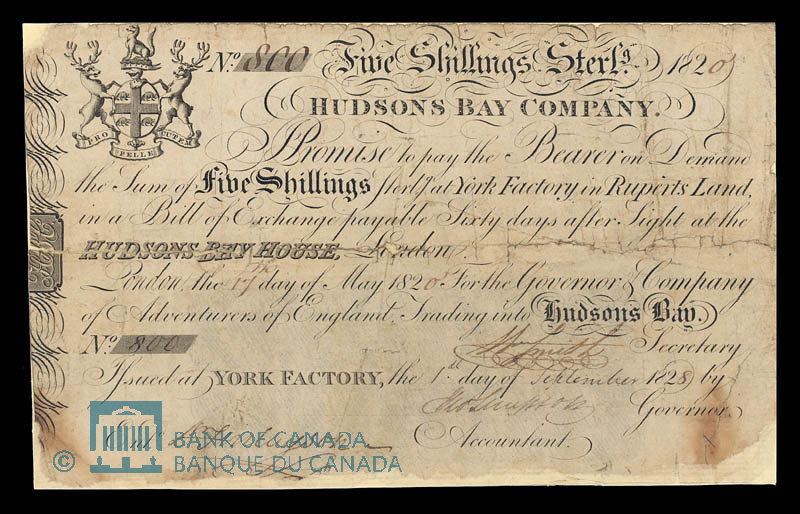 No. 800 Five Shillings Sterlg. 1820
HUDSONS BAY COMPANY.
PRO PELLE CUTEM
Promise to pay the Bearer on Demand
the Sum of Five Shillings Sterlg. at York Factory, in Ruperts Land,
in a Bill of Exchange payable Sixty days after Sight at the
HUDSONS BAY HOUSE, London.
London, the day of May 1820 For the Governor & Company
of Adventurers of England, Trading into Hudsons Bay.
No. 800 Wm Smith Secretary
Issued at YORK FACTORY, the 1st day of September 1828 by
Geo Simpson Governor.
Entd. Accountant.
© BANK OF CANADA
BANQUE DU CANADA